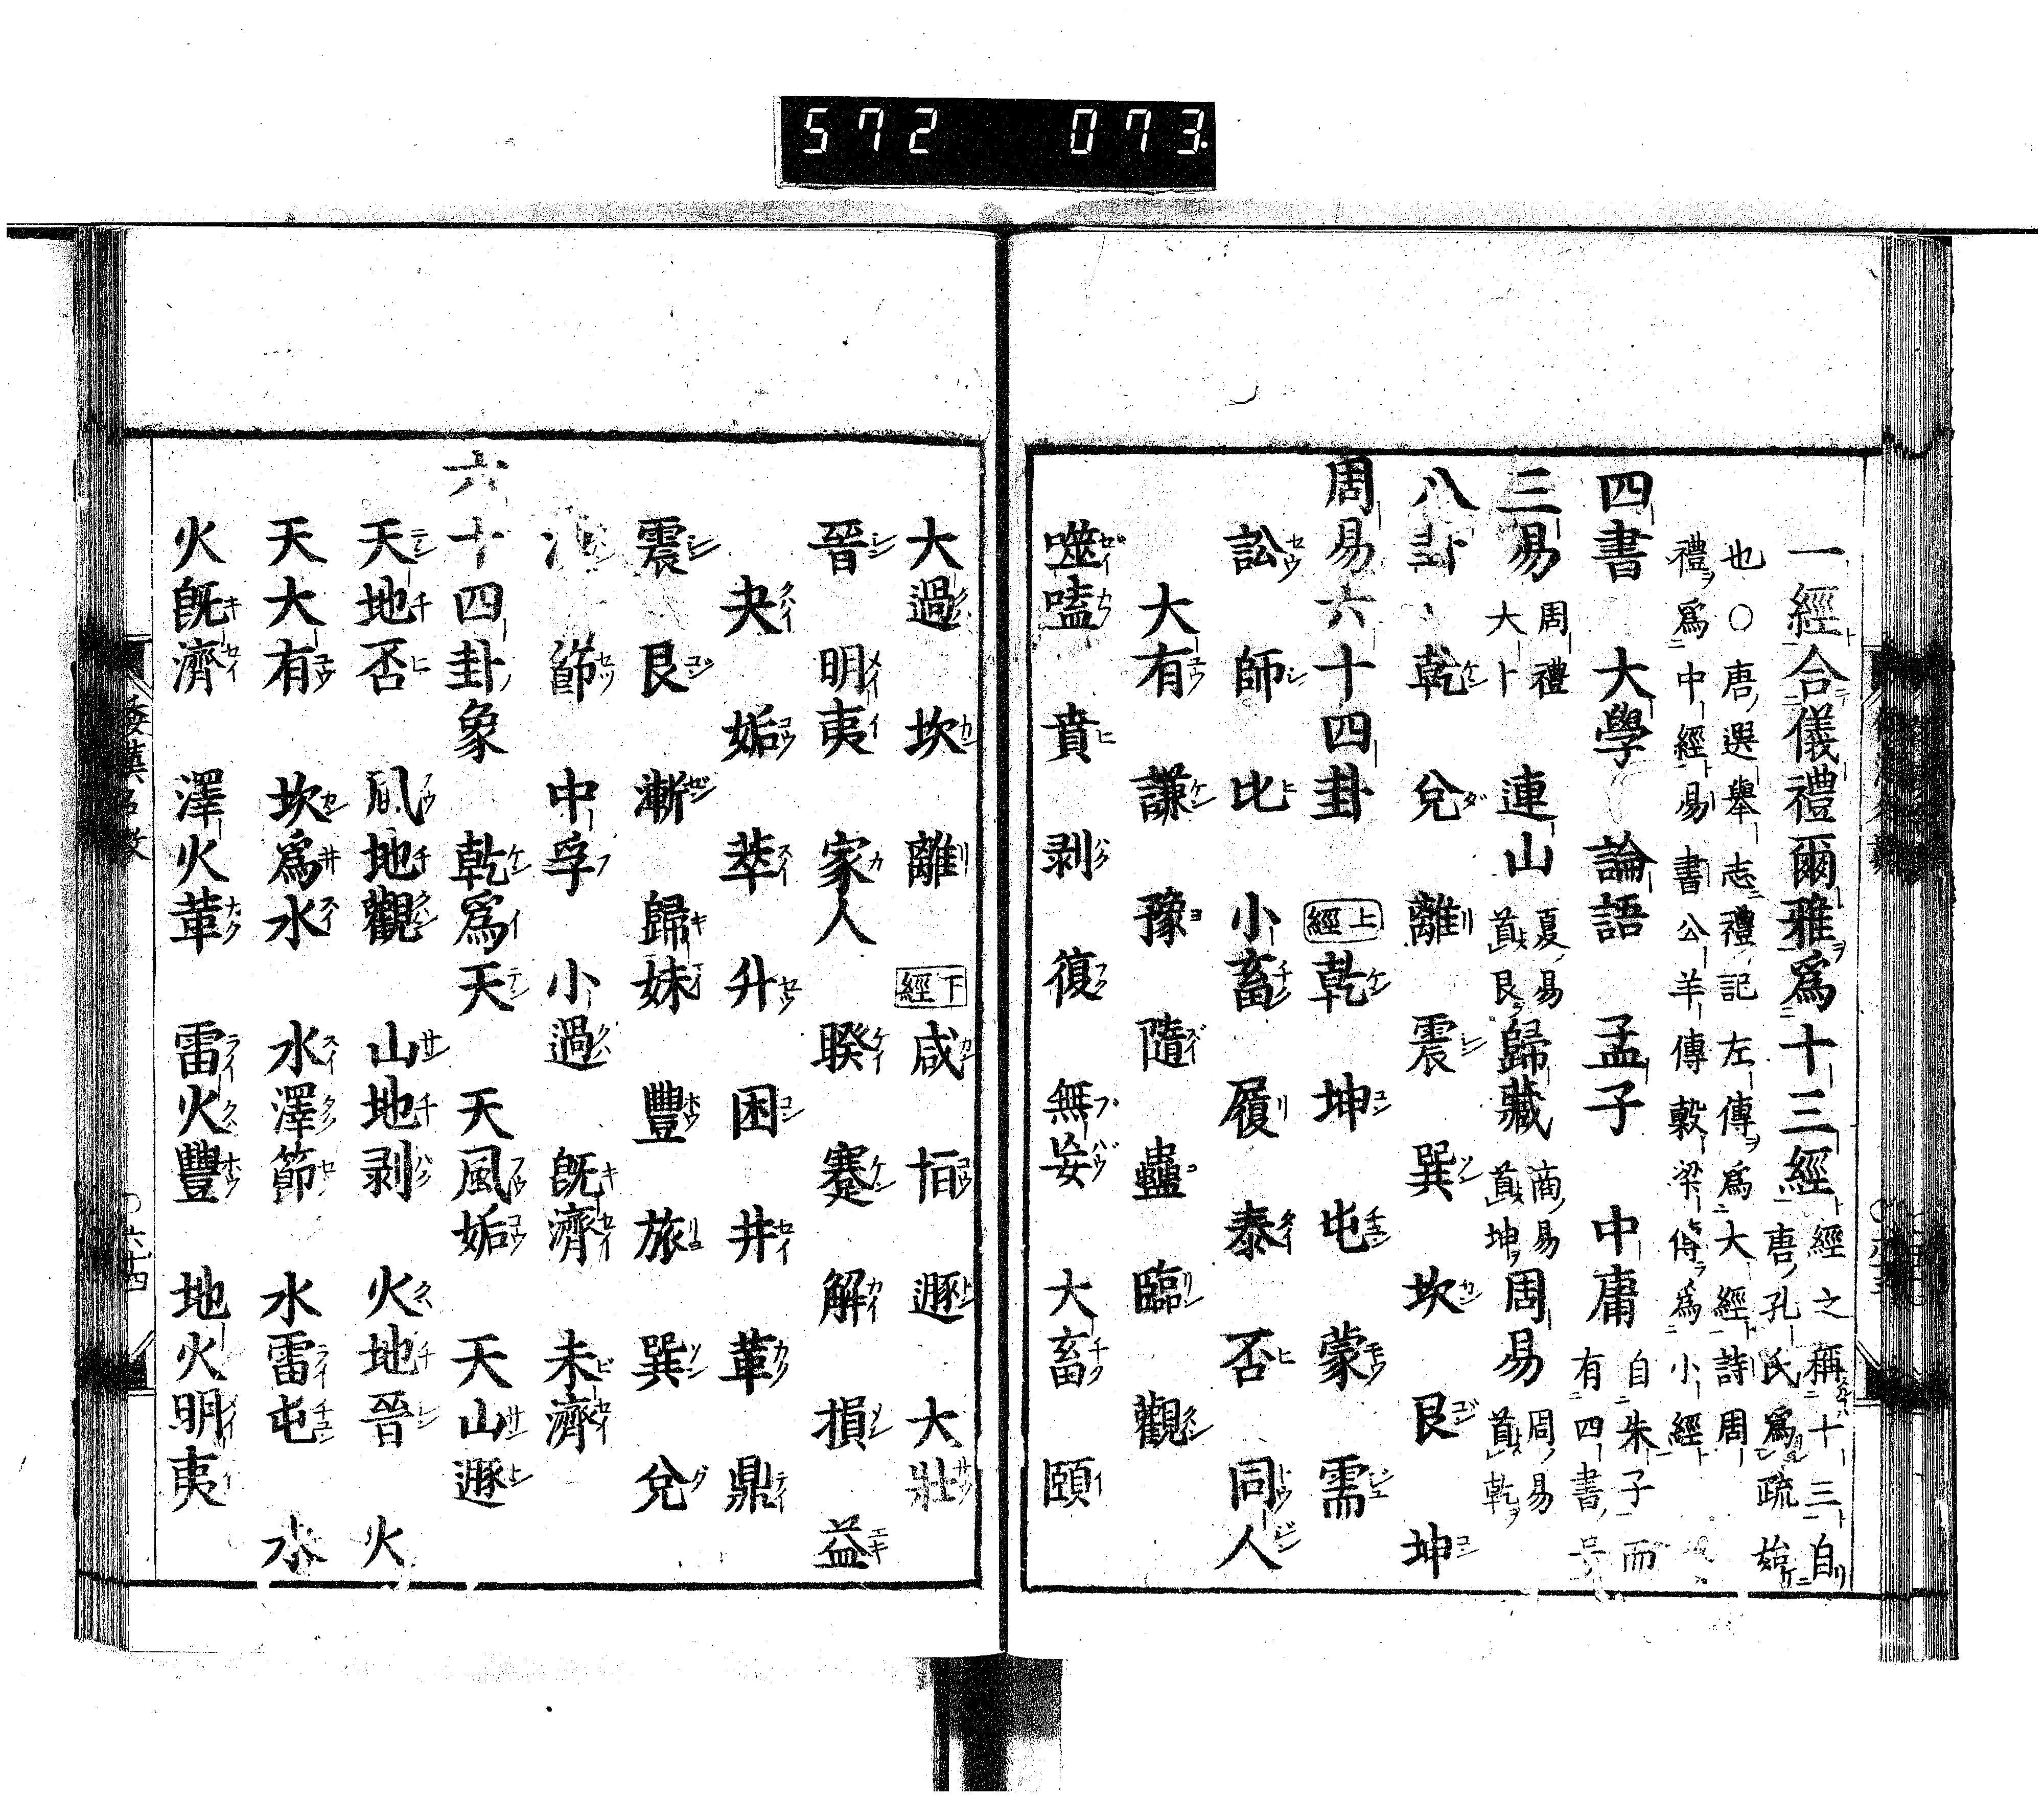 572 073
一經合儀禮爾雅爲十三經 經之稱十三自
唐孔氏爲疏始
也○唐選舉志禮記左傳爲大經詩周
禮爲中經易書公羊傳穀梁傳爲小經
四書 大學 論語 孟子 中庸 自朱子而
有四書
三易 周禮大卜 連山 夏易首艮 歸藏 商易首坤 周易 周易首乾
八卦 乾 兌 離 震 巽 坎 艮 坤
周易六十四卦 上經 乾 坤 屯 蒙 需
訟 師 比 小畜 履 泰 否 同人
大有 謙 豫 隨 蠱 臨 觀
噬嗑 賁 剥 復 無妄 大畜 頤
大過 坎 離 下經 咸 恒 遯 大壯
晉 明夷 家人 睽 蹇 解 損 益
夬 姤 萃 升 困 井 革 鼎
震 艮 漸 歸妹 豐 旅 巽 兌
節 中孚 小過 既濟 未濟
六十四卦象 乾爲天 天風姤 天山遯
天地否 風地觀 山地剥 火地晉 火
天大有 坎爲水 水澤節 水雷屯 水
火既濟 澤火革 雷火豐 地火明夷
倭漢名數 ○六十四